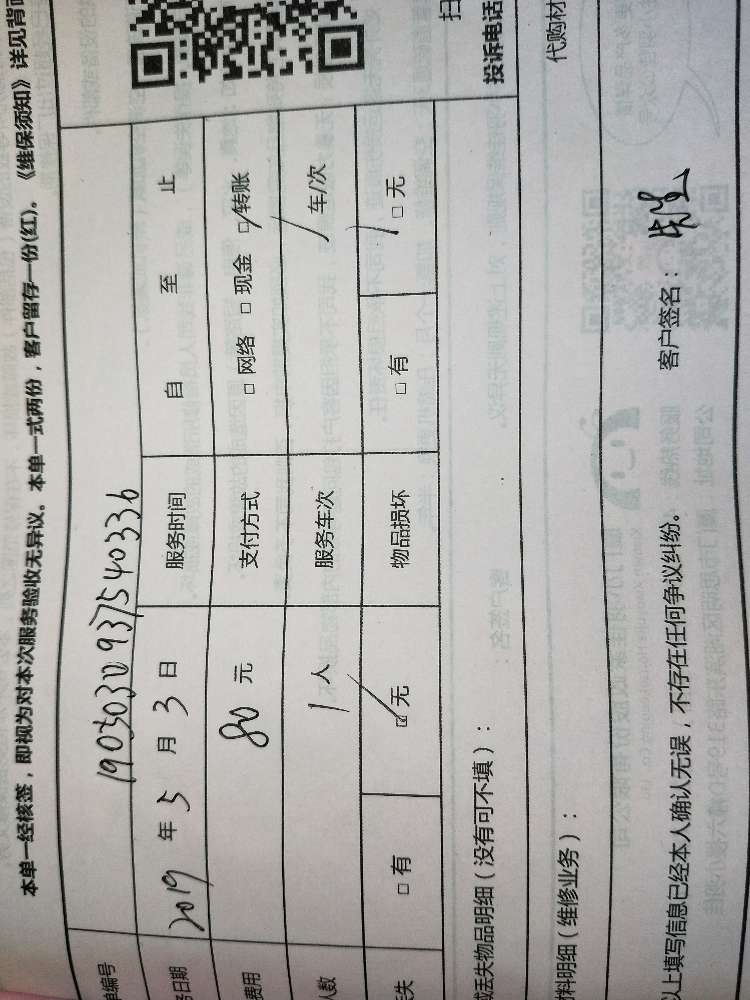 本单一经核签，即视为对本次服务验收无异议。本单一式两份，客户留存一份(红)。《维保须知》详见背面
单编号 1905030937540336
务日期 2019 年 5 月 3 日 服务时间 自 至 止
费用 80 元 支付方式 □ 网络 □ 现金 □ 转账
人数 1 人 服务车次 / 车/次
丢失 □ 有 ☑ 无 物品损坏 □ 有 □ 无
或丢失物品明细（没有可不填）： 投诉电话 扫
料明细（维修业务）： 代购材
以上填写信息已经本人确认无误，不存在任何争议纠纷。 客户签名：